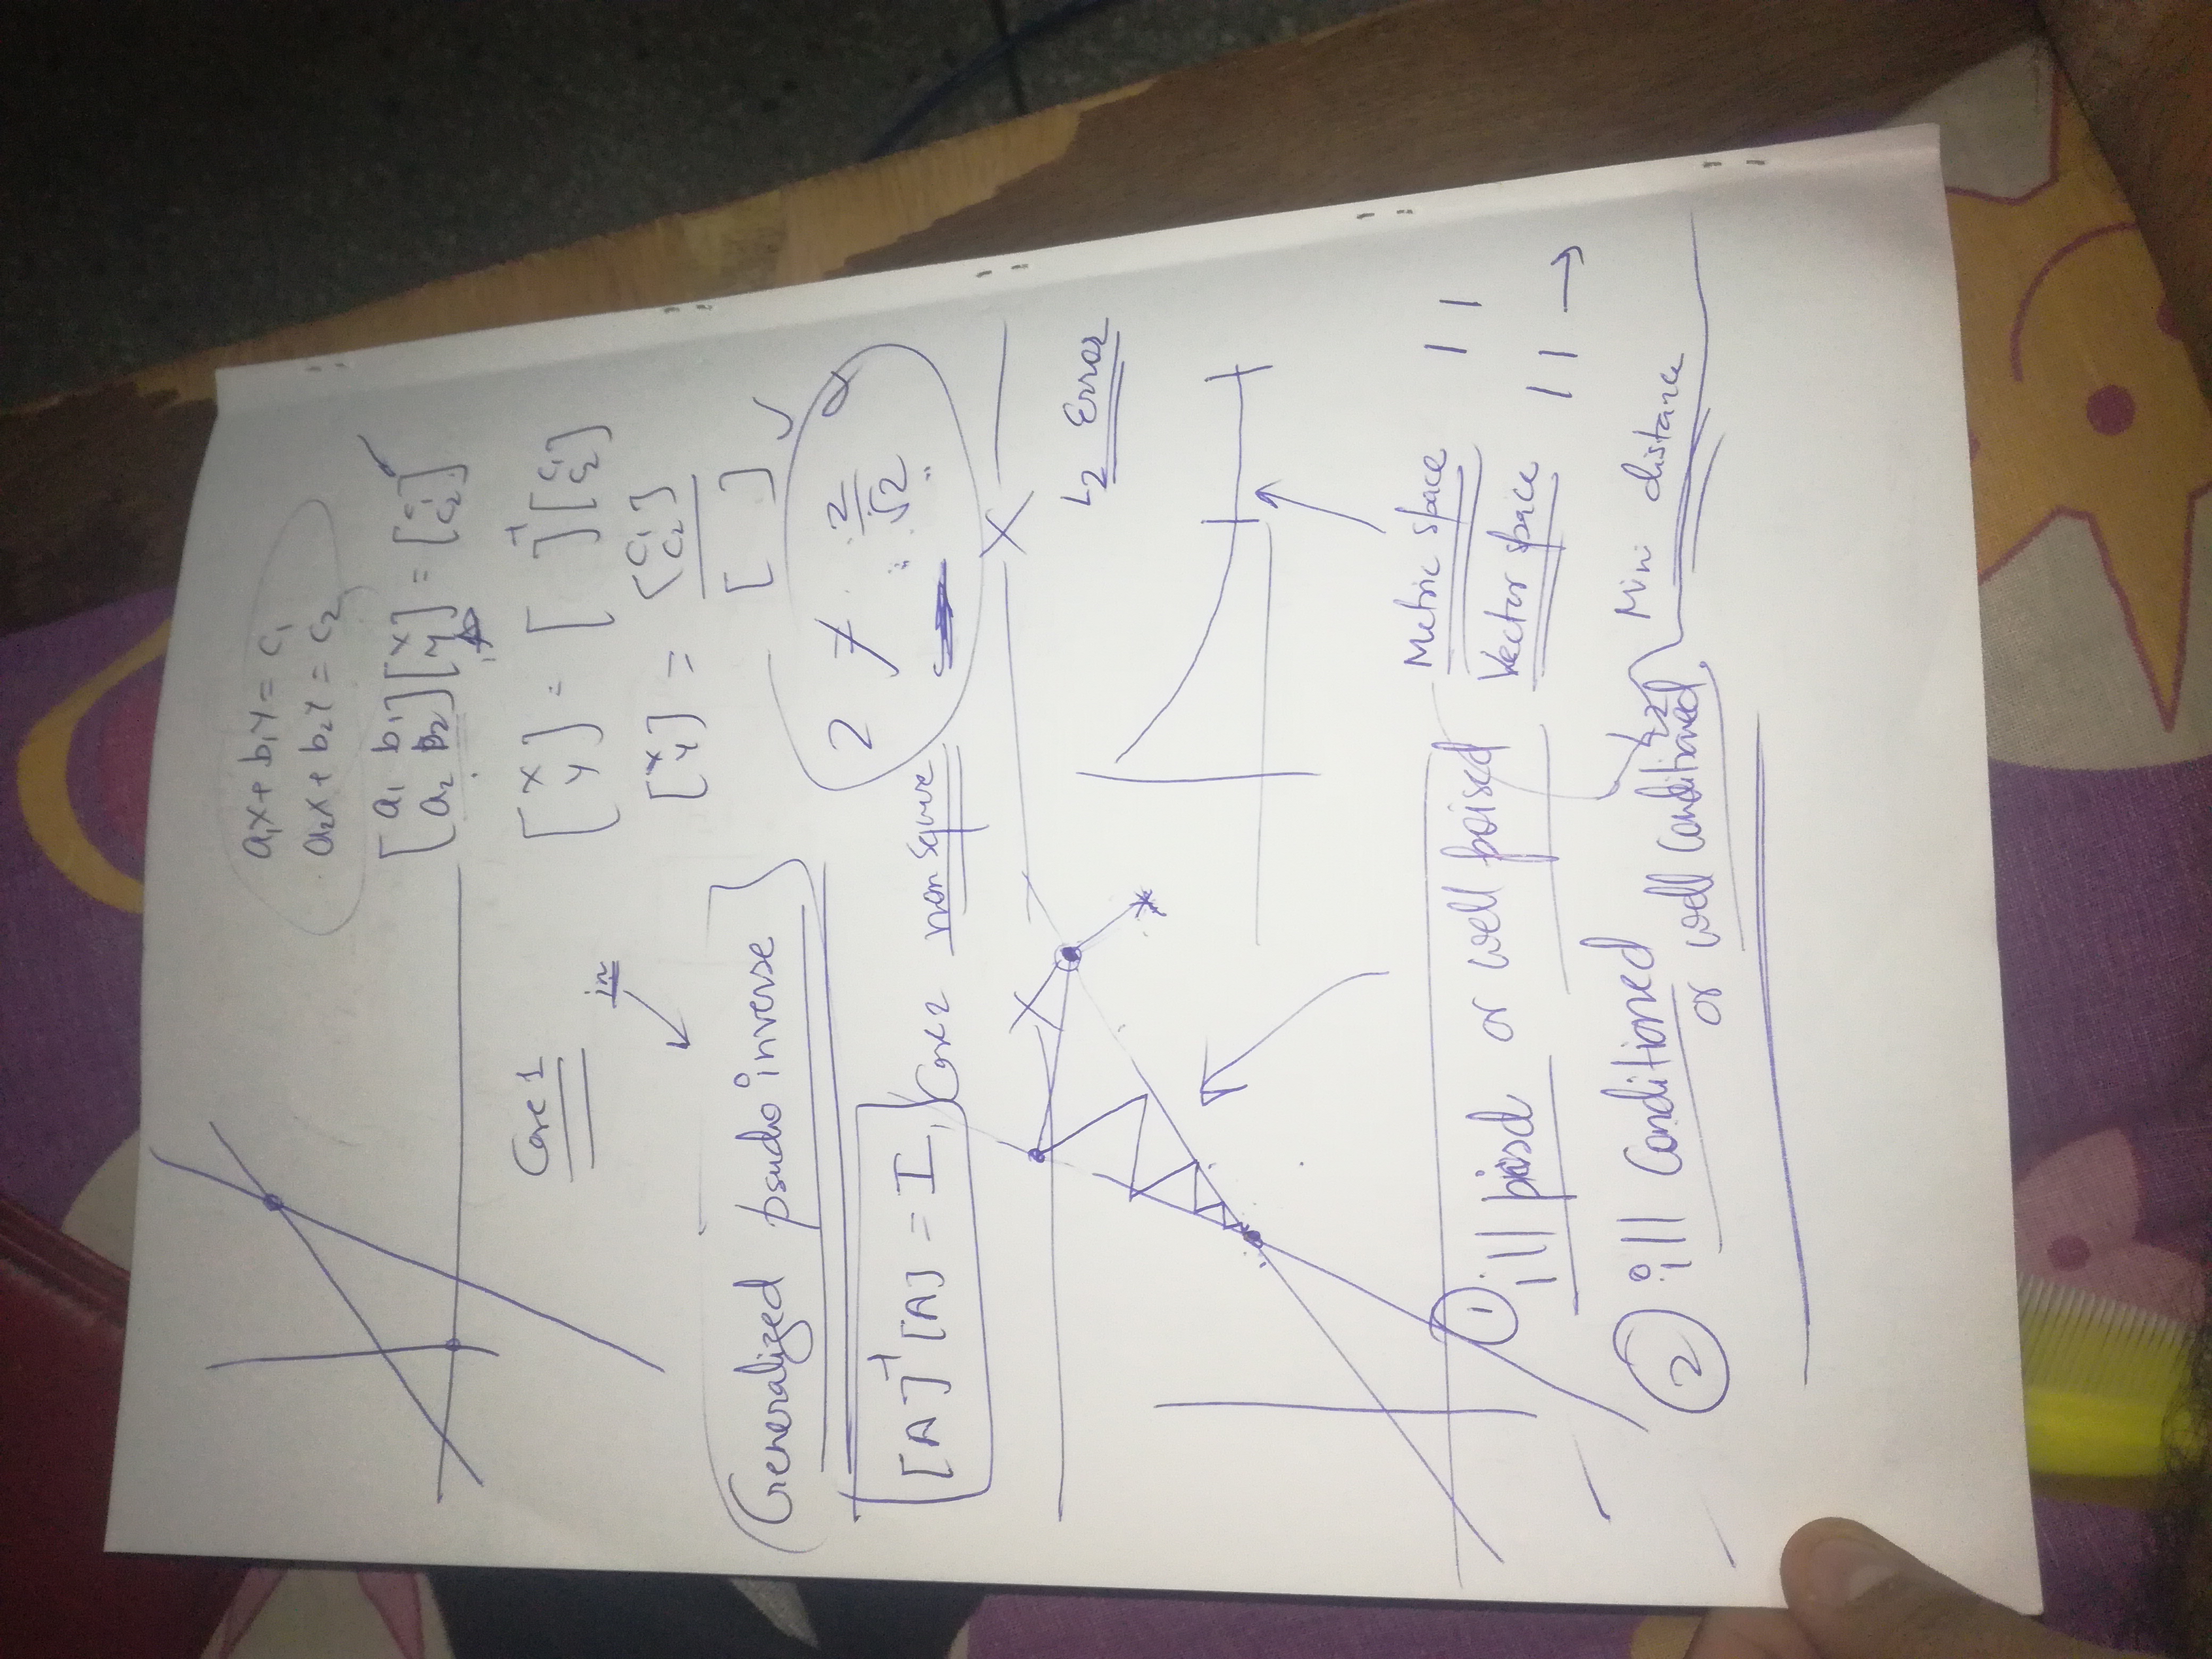 a₁x + b₁y = c₁
a₂x + b₂y = c₂
[a₁ b₁
a₂ b₂] [x
y] = [c₁
c₂]
Case 1
[x
y] = [ ]⁻¹ [c₁
c₂]
in
[x
y] = [c₁
c₂]
[ ]
Generalized psudo inverse
2 ≠ 2/√2
[A]⁻¹ [A] = I,
Case 2 non square
L₂ Error
Metric space | |
① ill poised or well poised
Vector space | | →
② ill Conditioned
or well Conditioned.
L2
Min distance